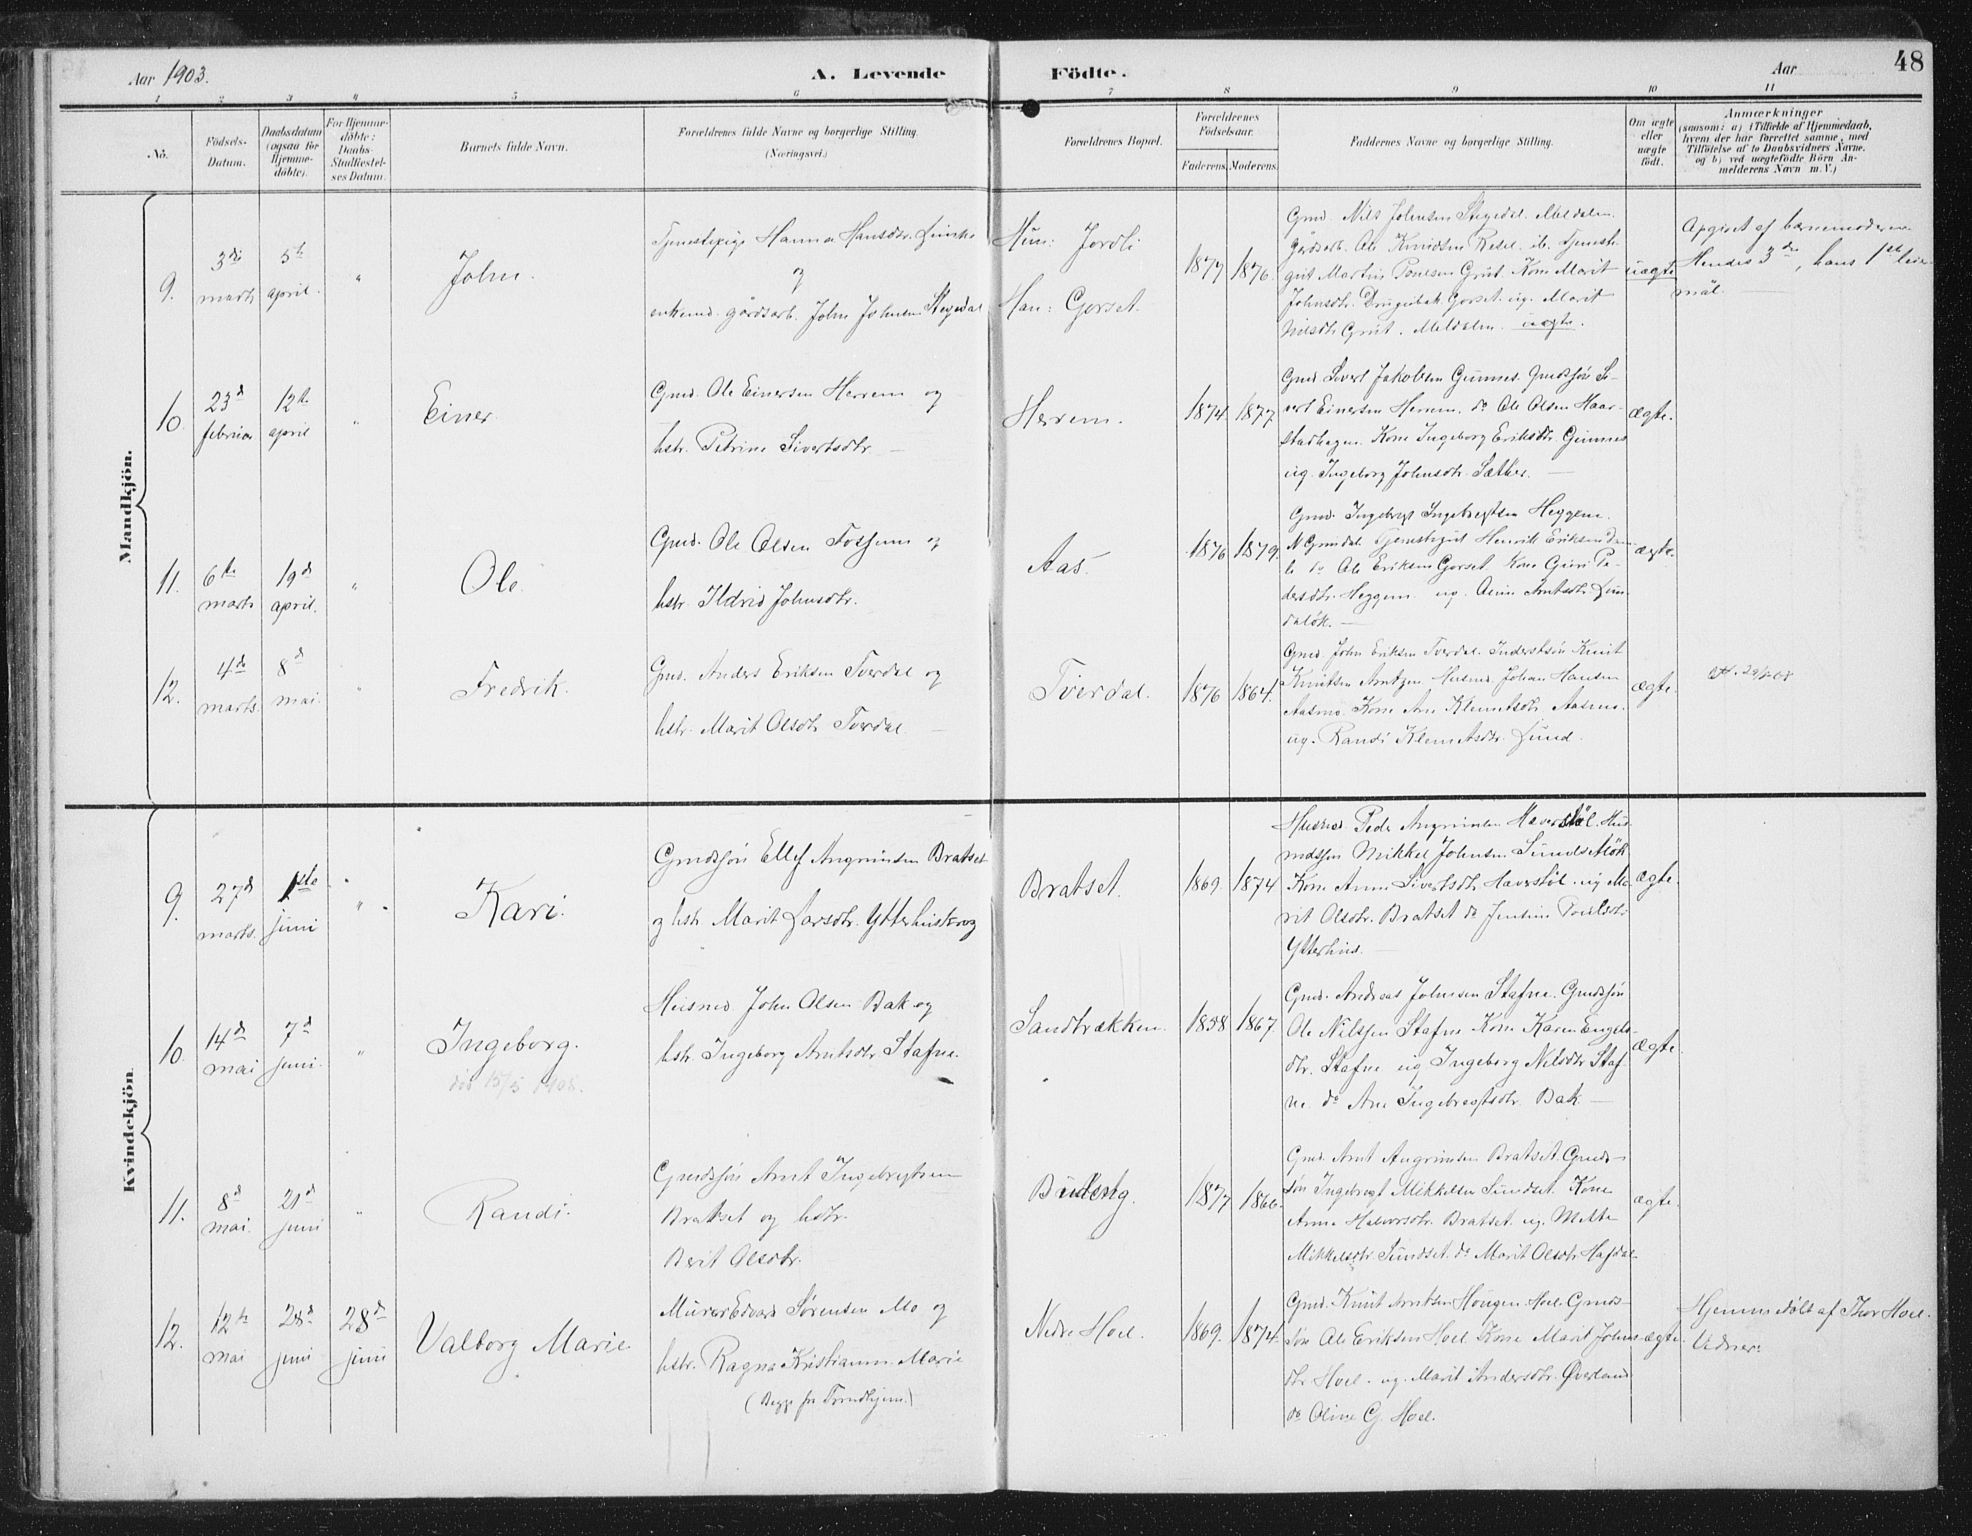 Aar 1903.
A. Levende
Födte.
Aar
48
1 2 3 4 5 6 7 8 9 10 11
No.
Födsels-
Datum.
Daabsdatum
(ogsaa for
Hjemme-
döbte).
For Hjemme-
döbte:
Daabs-
Stadfæstel-
ses Datum.
Barnets fulde Navn.
Forældrenes fulde Navne og borgerlige Stilling.
(Næringsvei.)
Forældrenes Bopæl.
Forældrenes
Födselsaar.
Faderens. Moderens.
Faddernes Navne og borgerlige Stilling.
Om ægte
eller
uægte
födt.
Anmærkninger
(saasom: a) i Tilfælde af Hjemmedaab,
hvem der har forrettet samme, med
Tilföielse af to Daabsvidners Navne.
og b) ved uægtefödte Börn An-
melderens Navn m. V.)
Mandkjön.
9.
3di
marts
5te
april.
"
John.
Tjenestepige Hanna Hansdtr.
og
enkemd. gårdsarb. John Johnsen Stegedal
Hun: Jordli
Han: Gorset.
1877 1876.
Gmd. Nils Johnsen Stegedal. Meldalen.
gårdsarb. Ole Knudsen Resel. ib. Tjenest-
gut Martin Grut. Kone Marit
Johnsdtr. Gorset. ug. Marit
Nilsdtr. Grut. Meldalen. uægte.
uægte
Opgivet af barnemoderen.
Hendes 3de, hans 1ste leie-
mål.
10.
23d
februar
12te
april
"
Einer.
Gmd. Ole Einersen Herrem og
hstr. Petrine Sivertsdtr.
Herrem.
1874. 1877.
Gmd Sivert Jakobsen Gunnes. Gmdssön Si-
vert Einersen Herrem. do Ole Olsen Haar-
stadhagen. Kone Ingeborg Eriksdtr. Gunnes
ug. Ingeborg Johnsdtr. Sæther.
ægte.
11.
6te
marts
19d
april.
"
Ole.
Gmd. Ole Olsen Fossem og
hstr. Ildrid Johnsdtr.
Aas.
1876 1879.
Gmd. Ingebrigt Ingebrigtsen Heggem.
Tjenestegut Henrik Eriksen
do Ole Eriksen Gorset. Kone Guri Pe-
dersdtr. Heggem. ug. Arntsdtr.
ægte.
12.
4de
marts.
8d
mai.
"
Fredrik.
Gmd. Anders Eriksen Tverdal og
hstr. Marit Olsdtr Tverdal.
Tverdal.
1876 1864.
Gmd. John Eriksen Tverdal. Inderstsön Knut
Knutsen Husmd. Johan Hansen
Aasmo. Kone Ane Klemetsdtr. Aasmo.
ug. Randi Klemetsdtr. Lund.
ægte.
Kvindekjön.
9.
27d
marts.
1ste
juni
"
Kari.
Gmdssön Ellef Angrimsen Bratset
og hstr. Marit Larsdtr. Ytterhusskog
Bratset.
1869. 1874
Husmd. Peder Angrimsen Haverstöl. Hus-
mdssön Mikkel Johnsen Sundsetlök
Kone Anne Sivertsdtr Haverstöl. ug Ma-
rit Olsdtr. Bratset do Jensine Poulsdtr.
Ytterhus.
ægte.
10.
14d
mai
7d
juni.
"
Ingeborg.
död 15/5 1908.
Husmd John Olsen Bak og
hstr. Ingeborg Arntsdtr Stafne.
Sandbrækken.
1858 1867.
Gmd. Andreas Johnsen Stafne. Gmdssön
Ole Nilssen Stafne Kone Karen Engels-
dtr. Stafne ug Ingeborg Nilsdtr Staf-
ne. do Ane Ingebrigtsdtr. Bak
ægte.
11.
8d
mai.
21d
juni
"
Randi.
Gmdssön Arnt Ingebrigtsen
Bratset og hstr.
Berit Olsdtr.
Budeng.
1877 1866.
Gmd. Arnt Angrimsen Bratset Gmds-
sön Ingebrigt Mikkelsen Sundset. Kone
Anne Halvorsdtr. Bratset. ug. Mette
Mikkelsdtr. Sundset. do Marit Olsdtr Hafdal
ægte.
12.
12te
mai
28d
juni
28d
juni
Valborg Marie
Murer Edvard Sørensen Mo og
hstr. Ragna Kristianne Marie
(Begge fra Trondhjem.)
Nedre Hoel.
1869. 1874.
Gmd. Knut Arntsen Hougen Hoel. Gmds-
sön Ole Eriksen Hoel Kone Marit Johns-
dtr Hoel. ug. Marit Andersdtr. Øverland
do Oline G. Hoel.
ægte.
Hjemmedöbt af Thor Hoel.
Vidner: